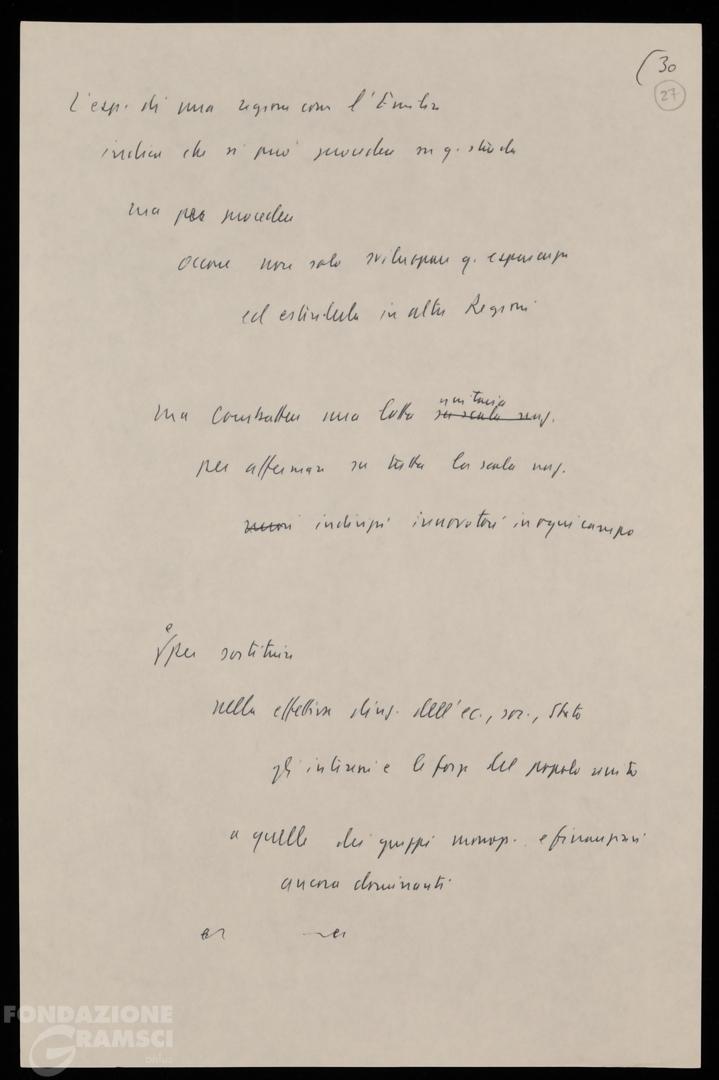 (30
27
L'esp. di una regione come l'Emilia
indica che si può procedere su q. strada
ma per procedere
occorre non solo sviluppare q. esperienza
ed estenderla in altre Regioni
unitaria
ma combattere una lotta su scala naz.
per affermare su tutta la scala naz.
indirizzi innovatori in ogni campo
e
per sostituire
nella effettiva direz. dell'ec., soc., Stato
gli interessi e le forze del popolo unito
a quelle dei gruppi monop. e finanziari
ancora dominanti
FONDAZIONE
GRAMSCI
onlus